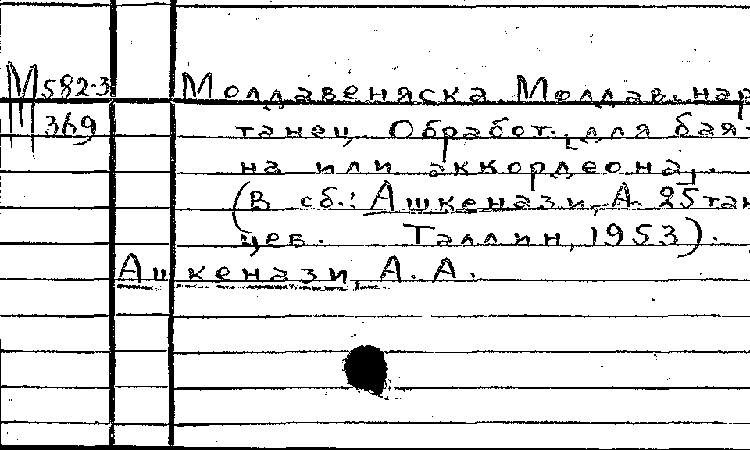 М 582-3 Молдавеняска Молдав. нар
369 танец. Обработ. [для бая-
на или аккордеона].
(В сб.: Ашкенази, А. 25 тан
цев. Таллин, 1953).
Ашкенази, А. А.